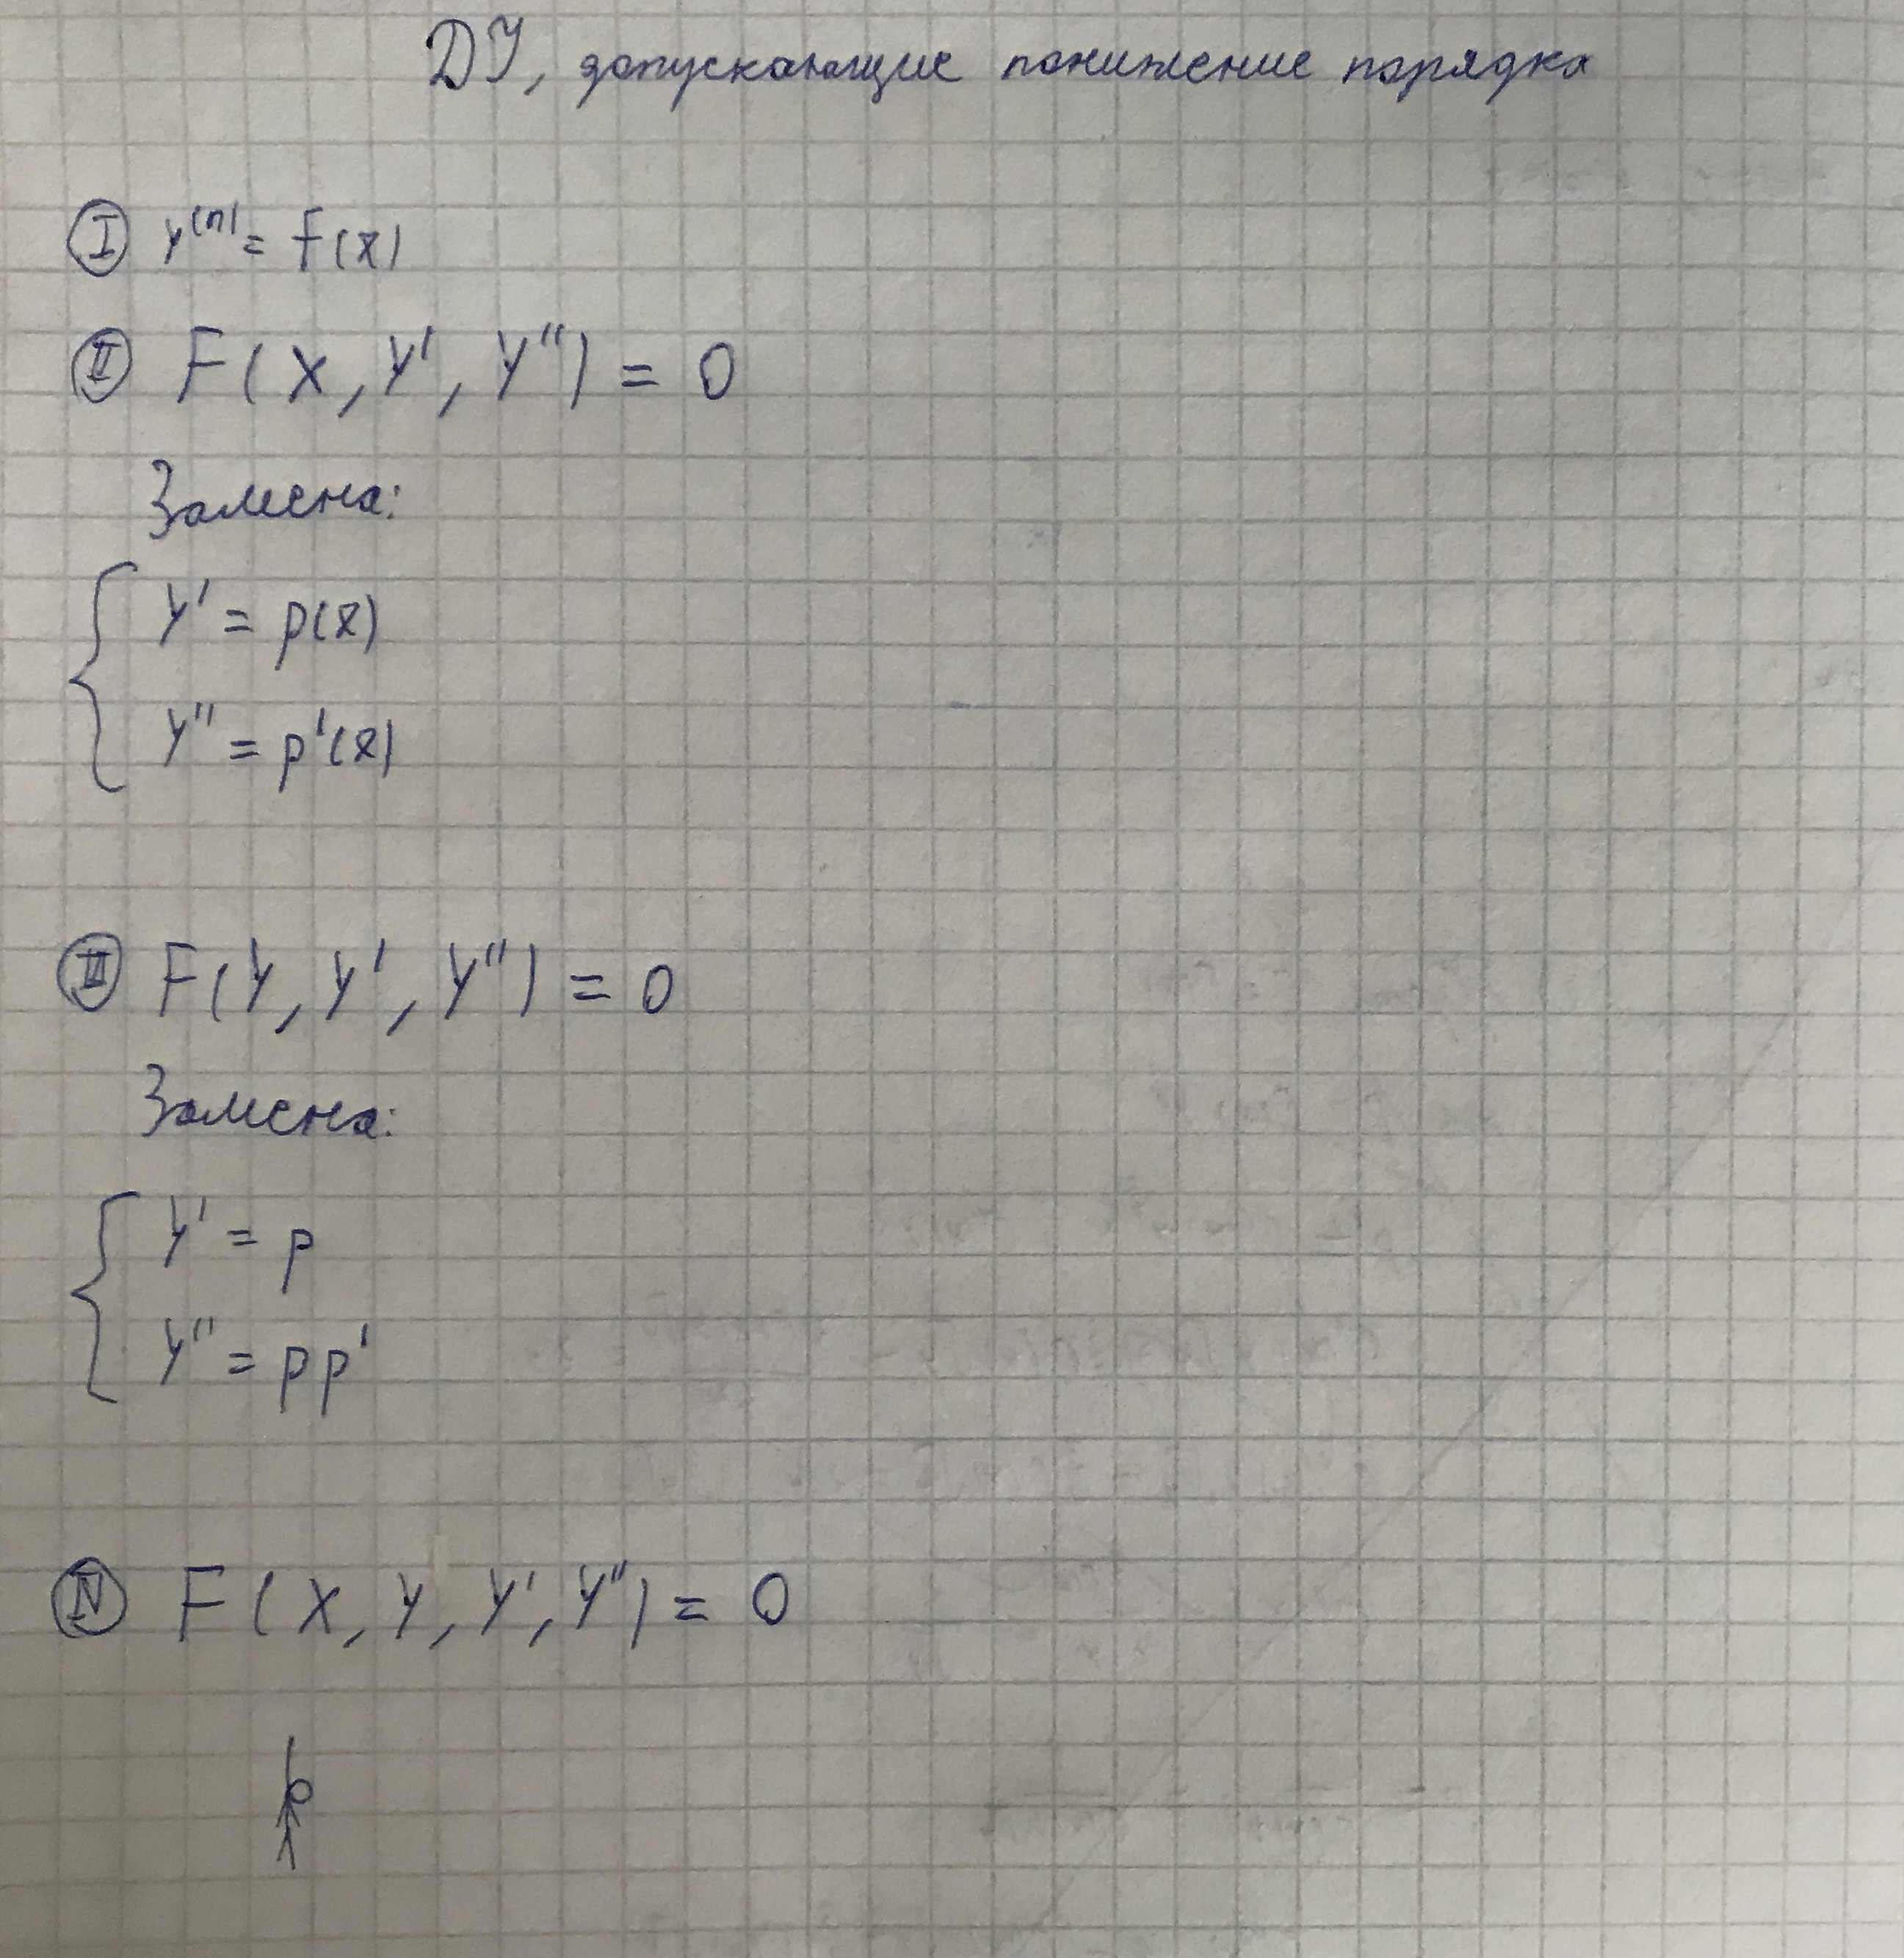 ДУ, допускающие понижение порядка
I y⁽ⁿ⁾ = f(x)
II F(x, y', y'') = 0
Замена:
y' = p(x)
y'' = p'(x)
III F(y, y', y'') = 0
Замена:
y' = p
y'' = pp'
IV F(x, y, y', y'') = 0